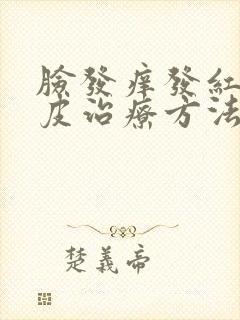 臉發痒發紅
皮治療方法
楚義帝